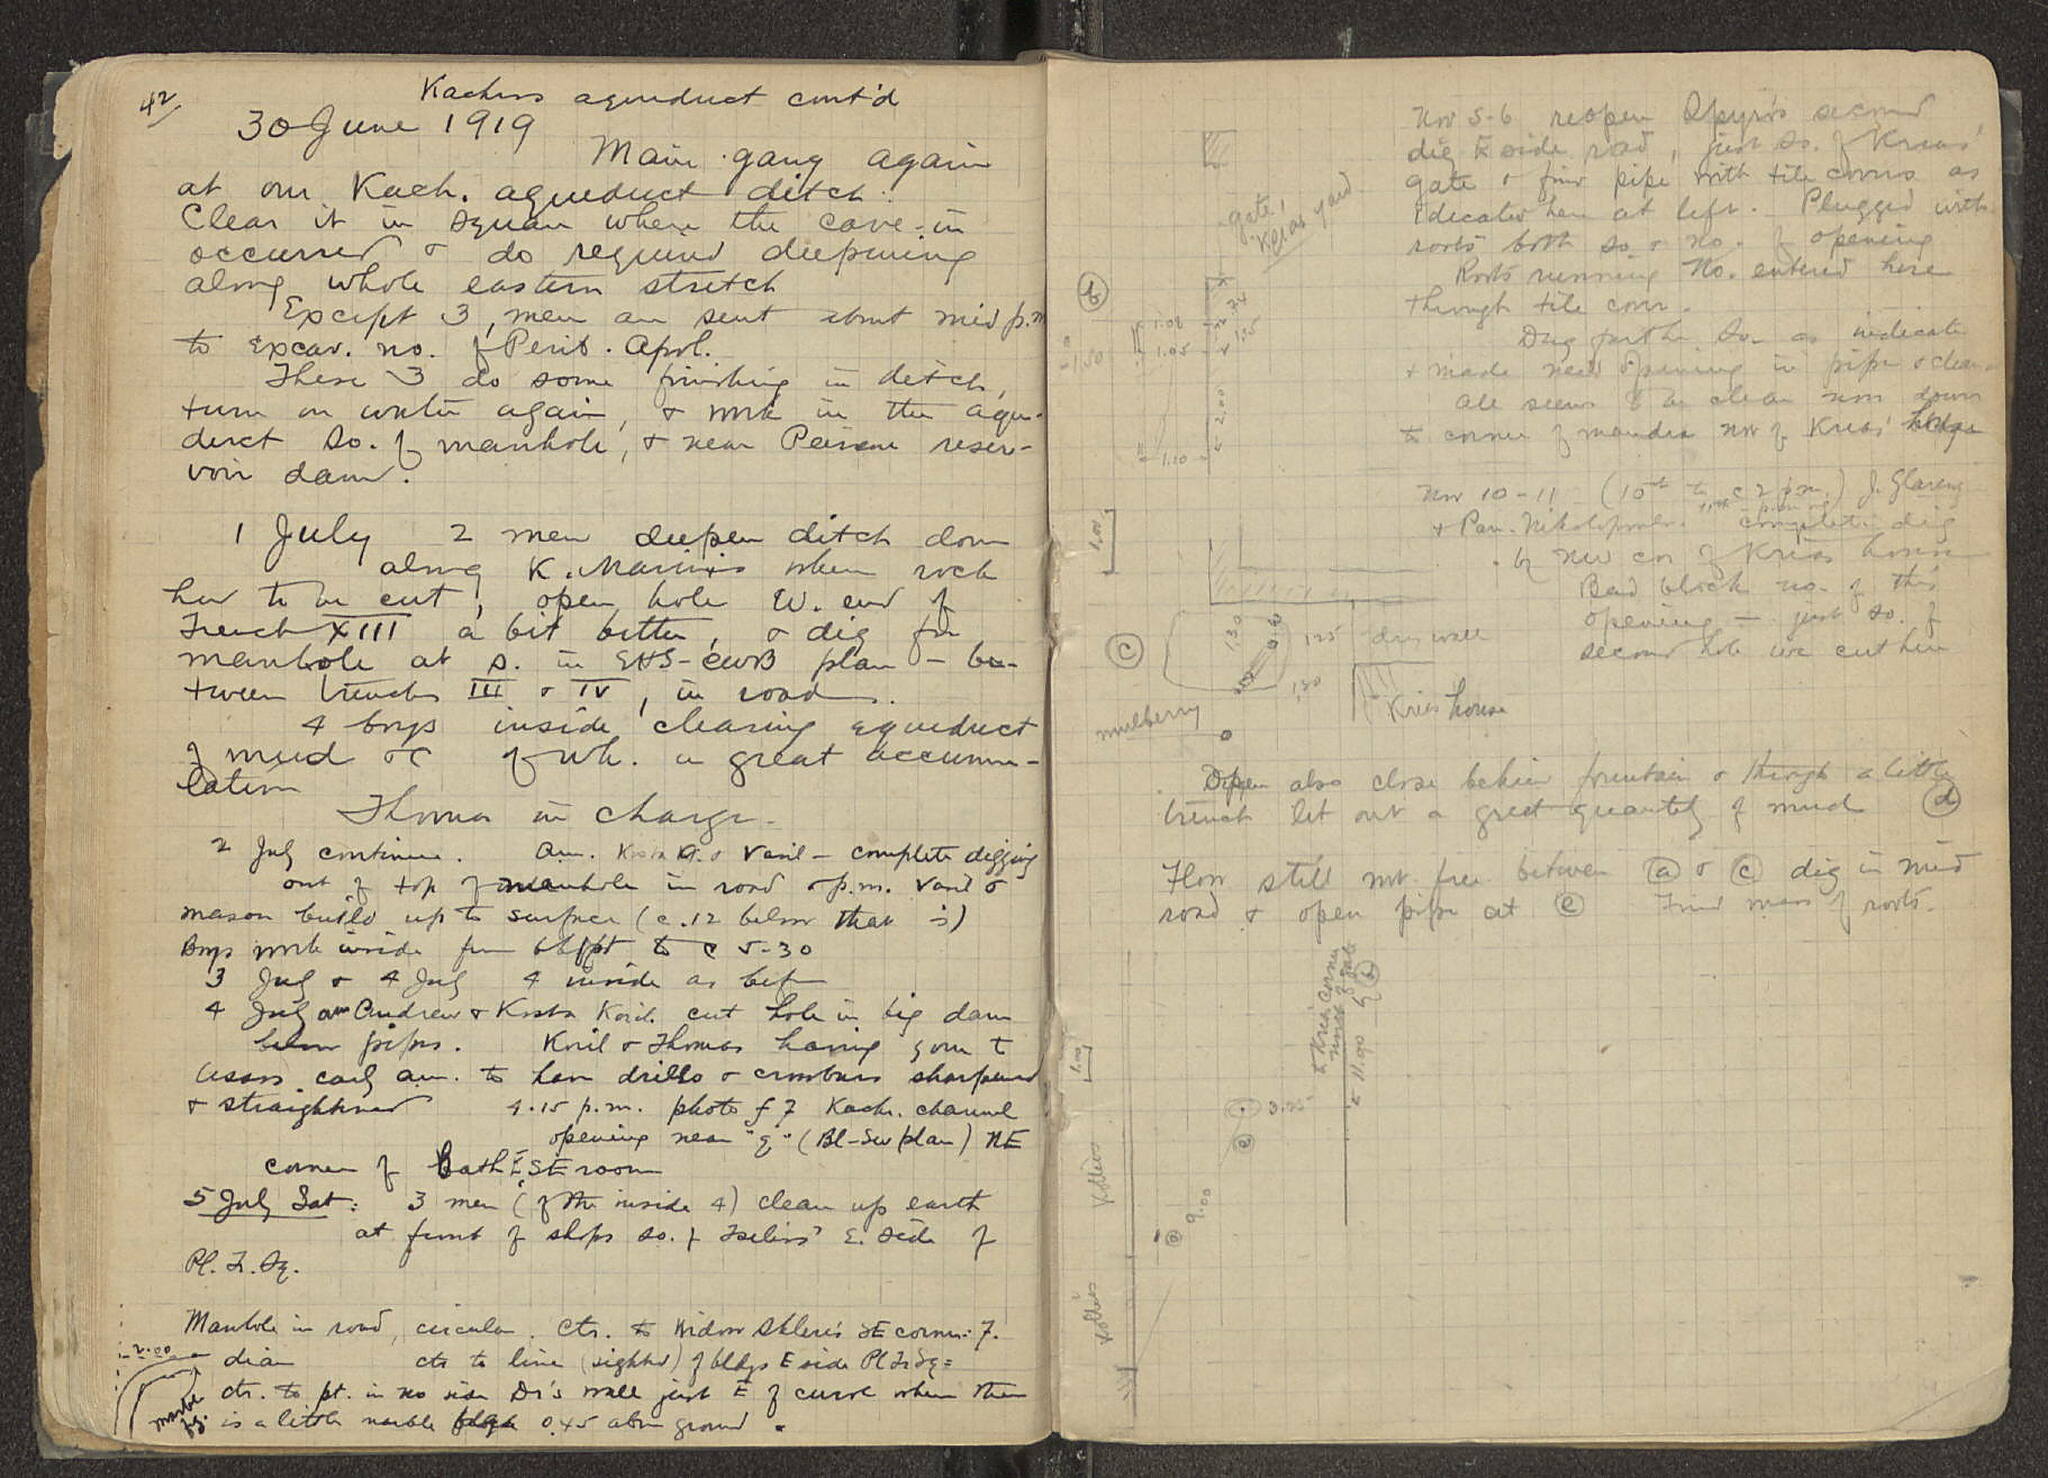 42
Kachros aqueduct cont'd
30 June 1919
Main gang again
at our Kach. aqueduct ditch.
Clear it in square where the cave-in
occurred & do required deepening
along whole eastern stretch
Except 3, men are sent about mid p.m
to Excav. no. of Perib. Apol.
These 3 do some finishing in ditch,
turn on water again, & work in the aque-
duct So. of manhole, & near Peirene reser-
voir dam.
1 July 2 men deepen ditch down
along K. Marinos where rock
had to be cut, open hole W. end of
Trench XIII a bit better, & dig for
manhole at s. in EHS-CWB plan - be-
tween trenches III & IV, in road.
4 boys inside clearing aqueduct
of mud &c of wh. a great accumu-
lation
Thomas in charge.
2 July continue. am. Kosta K. & Vasil - complete digging
out of top of manhole in road & p.m. Vasil &
mason build up to surface (c. 12 below that is)
Boys work inside fm to c 5-30
3 July & 4 July 4 inside as before
4 July am Andrew & Kosta cut hole in big dam
below pipes. & Thomas having gone to
early am. to have drills & crowbars sharpened
& straightened 4.15 p.m. photo f 7 Kach. channel
opening near "g" (Bl-Sw plan) NE
corner of Bath SE room
5 July Sat: 3 men (of the inside 4) clean up earth
at front of shops so. of Tselios' E. side of
Pl. Fr. Sq.
Manhole in road, circular. Ctr. to Widow SE corner: 7.
2.00 diam ctr to line (sighted) of bldgs E side Pl Fr Sq =
ctr. to pt. in no side Dr's wall just E of curve where there
marble fg. is a little marble 0.45 above ground.
Nov 5-6 reopen Spyro's second
dig E side road, just So. of Krias'
gate & find pipe with tile covers as
indicated here at left. Plugged with
roots both so & no. of opening
Roots running No. entered here
through tile cover.
Dug further So. as indicated
& made new opening in pipe & clean
all seems to be clear now down
to corner of mandra nw of Krias'
gate,
Krias yard
b
1.02
1.05
.24
1.35
1.50
2.00
1.10
Nov 10-11 (10th to c 2 p.m.) J.
& Pan. Nikolopoulos complete dig
by nw cor of Krias house
Bad block no. of this
opening - just so. of
second hole we cut here
1.00
c
1.30
0.60
1.25
dry wall
1.30
Krias house
mulberry
Open also close behind fountain & through a little
trench let out a great quantity of mud d
Flow still not free between a & c dig in mid
road & open pipe at e Find mass of roots.
to Krias corner
north of gate
11.90
b
1.00
3.25
e
Kollias
a 9.00
Kollias